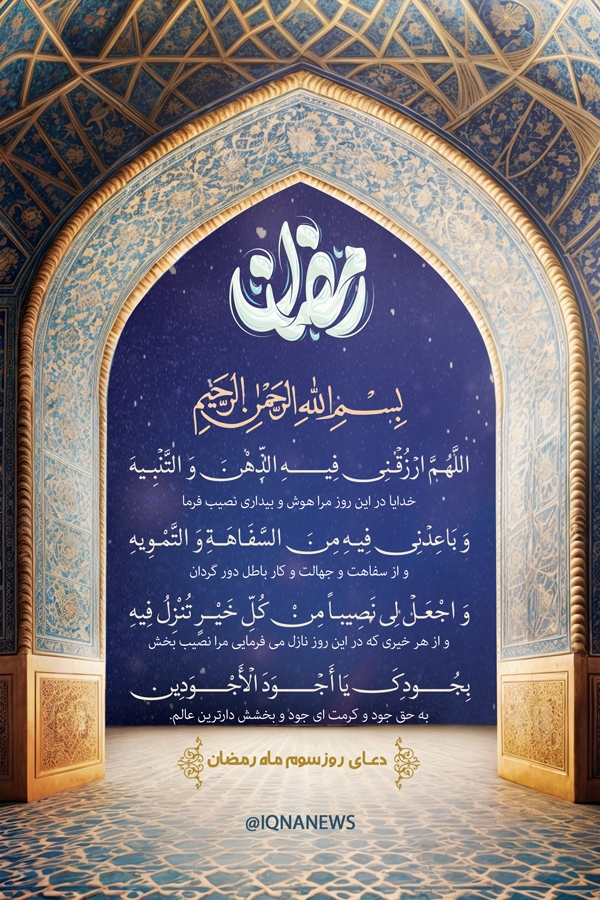 رمضان
بِسْمِ اللهِ الرَّحْمٰنِ الرَّحِيمِ
اللَّهُمَّ ارْزُقْنِی فِیهِ الذِّهْنَ وَ التَّنْبِیهَ
خدایا در این روز مرا هوش و بیداری نصیب فرما
وَ بَاعِدْنِی فِیهِ مِنَ السَّفَاهَةِ وَ التَّمْوِیهِ
و از سفاهت و جهالت و کار باطل دور گردان
وَ اجْعَلْ لِی نَصِیباً مِنْ کُلِّ خَیْرٍ تُنْزِلُ فِیهِ
و از هر خیری که در این روز نازل می فرمایی مرا نصیب بخش
بِجُودِکَ یَا أَجْوَدَ الْأَجْوَدِین
به حق جود و کرمت ای جود و بخشش دارترین عالم.
دعای روز سوم ماه رمضان
@IQNANEWS